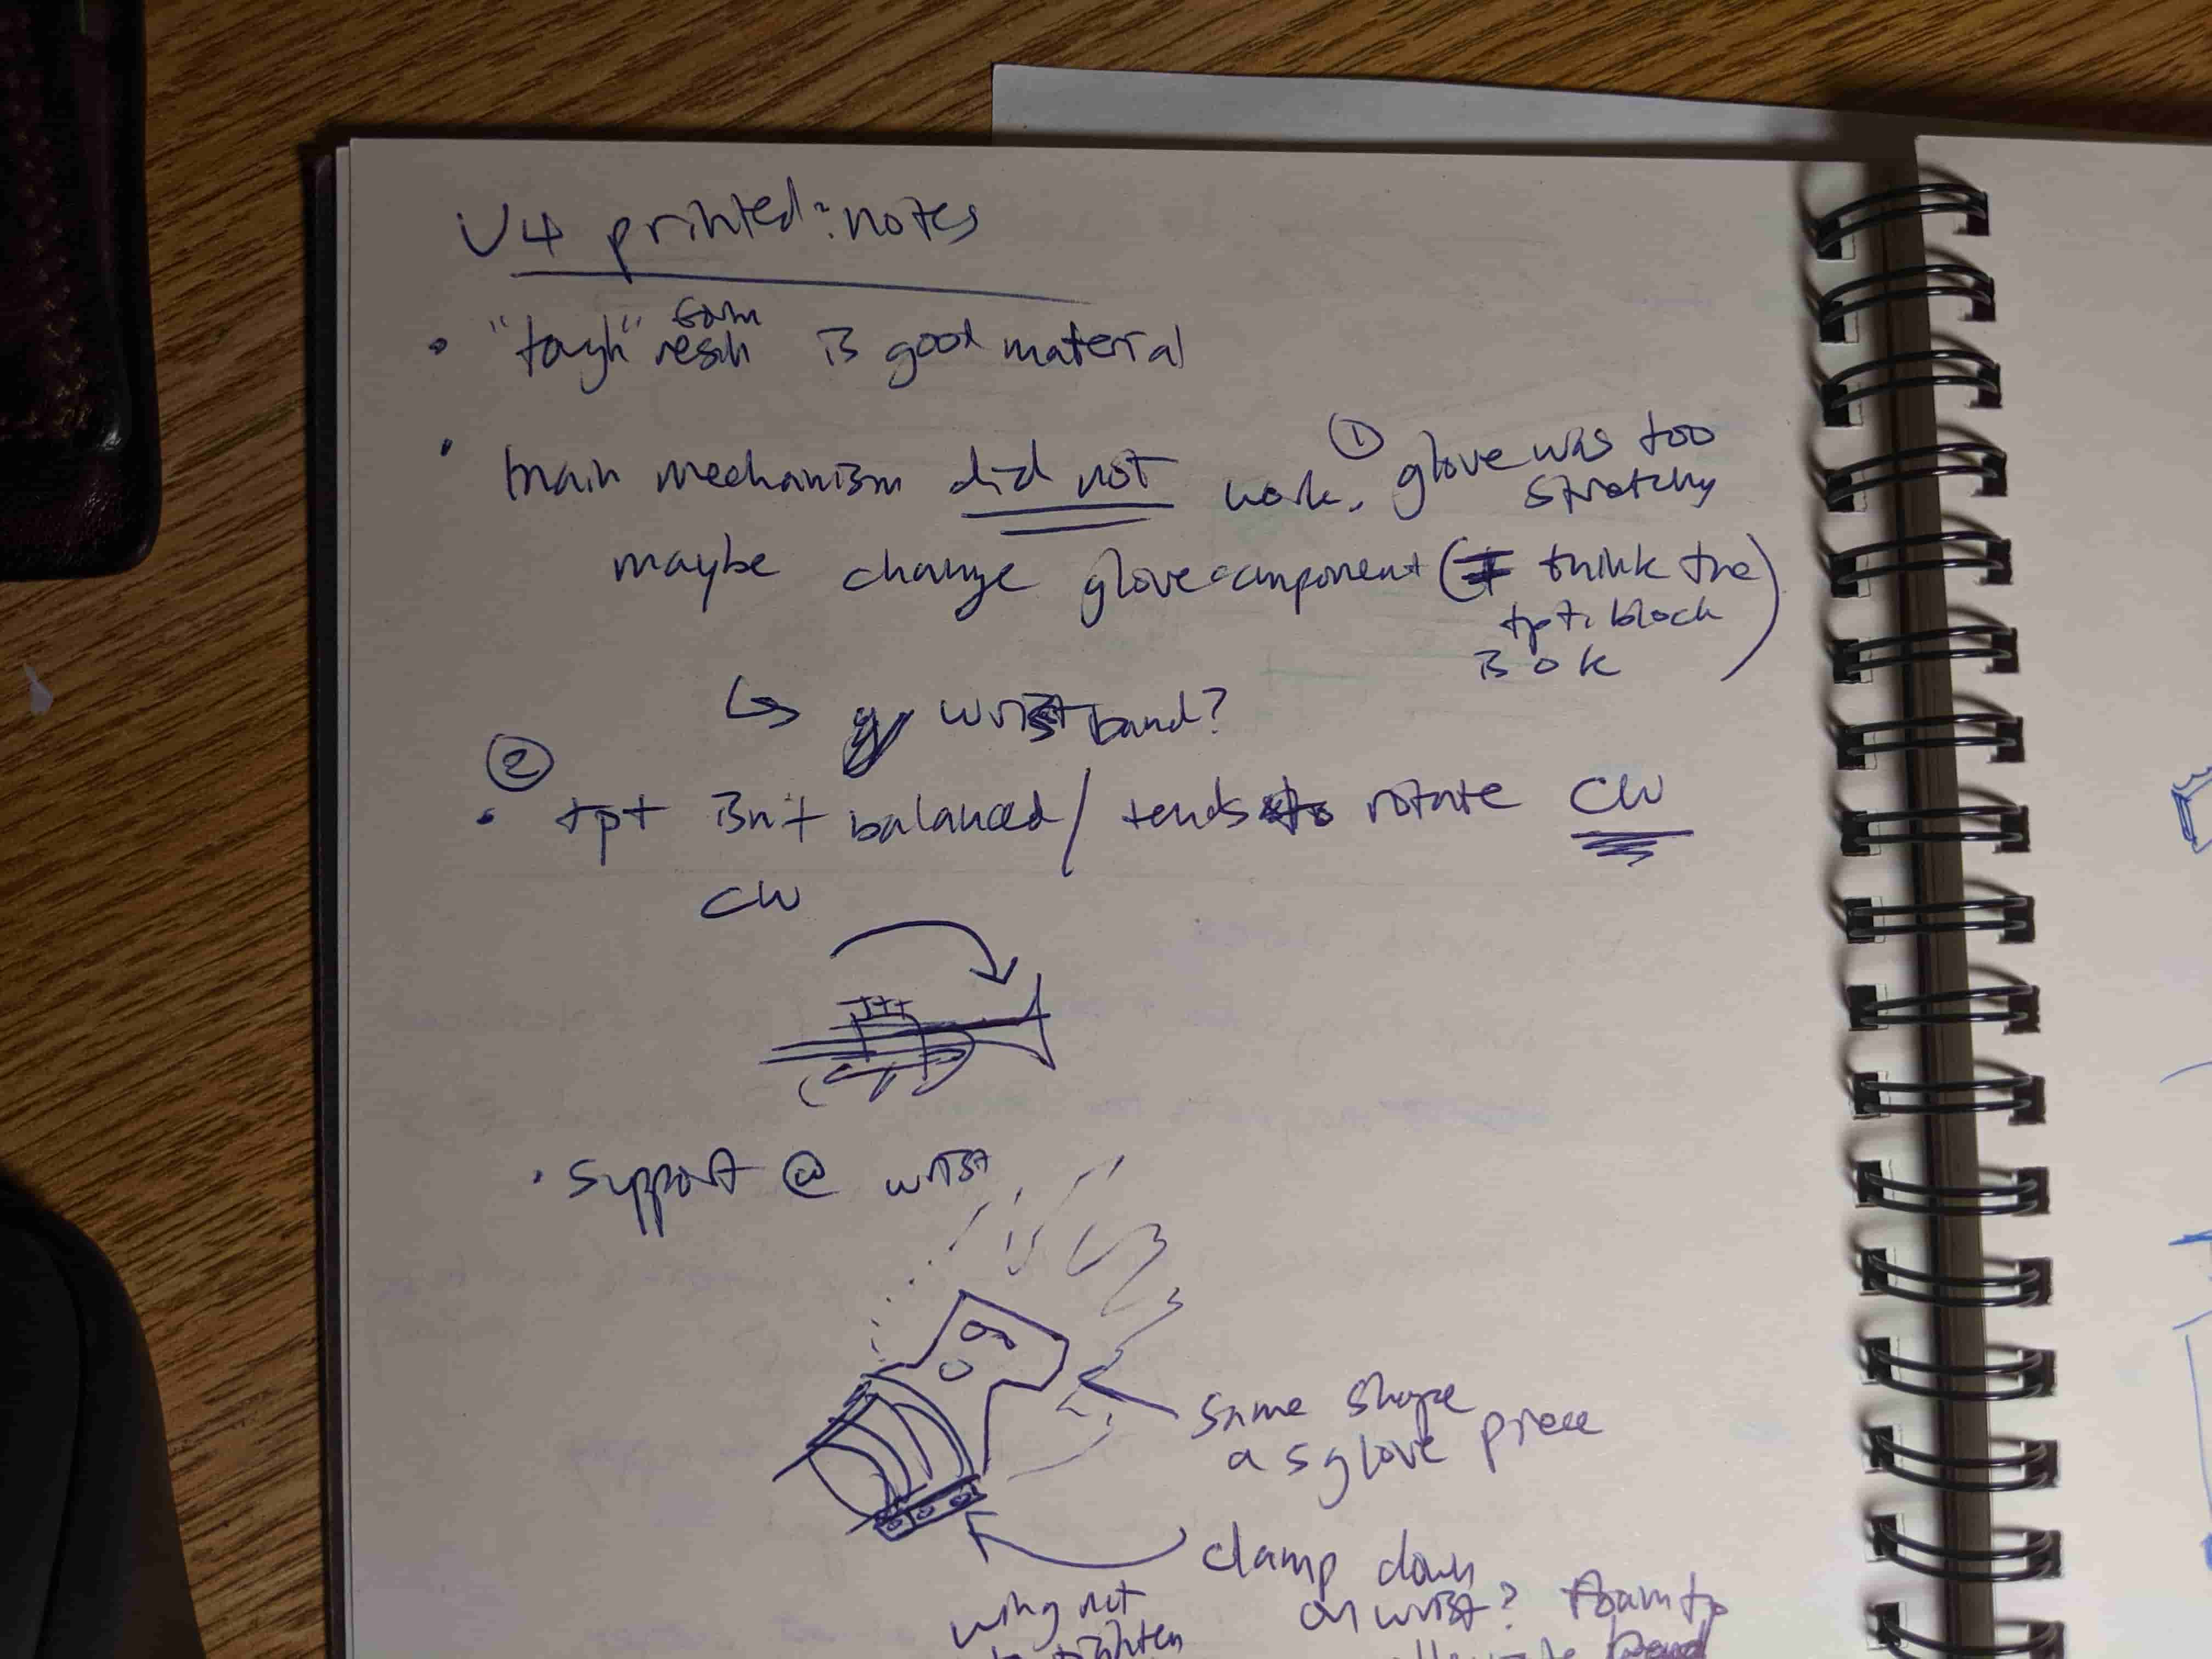 V4 printed: notes
• "tough" resin is good material
• main mechanism did not work. ① glove was too stretchy
maybe change glove component (I think the tpt. block is ok)
↳ wrist band?
②
• tpt isn't balanced / tends to rotate CW
CW
• support @ wrist
same shape
as glove piece
clamp down
on wrist? foam to
wing nut
to tighten